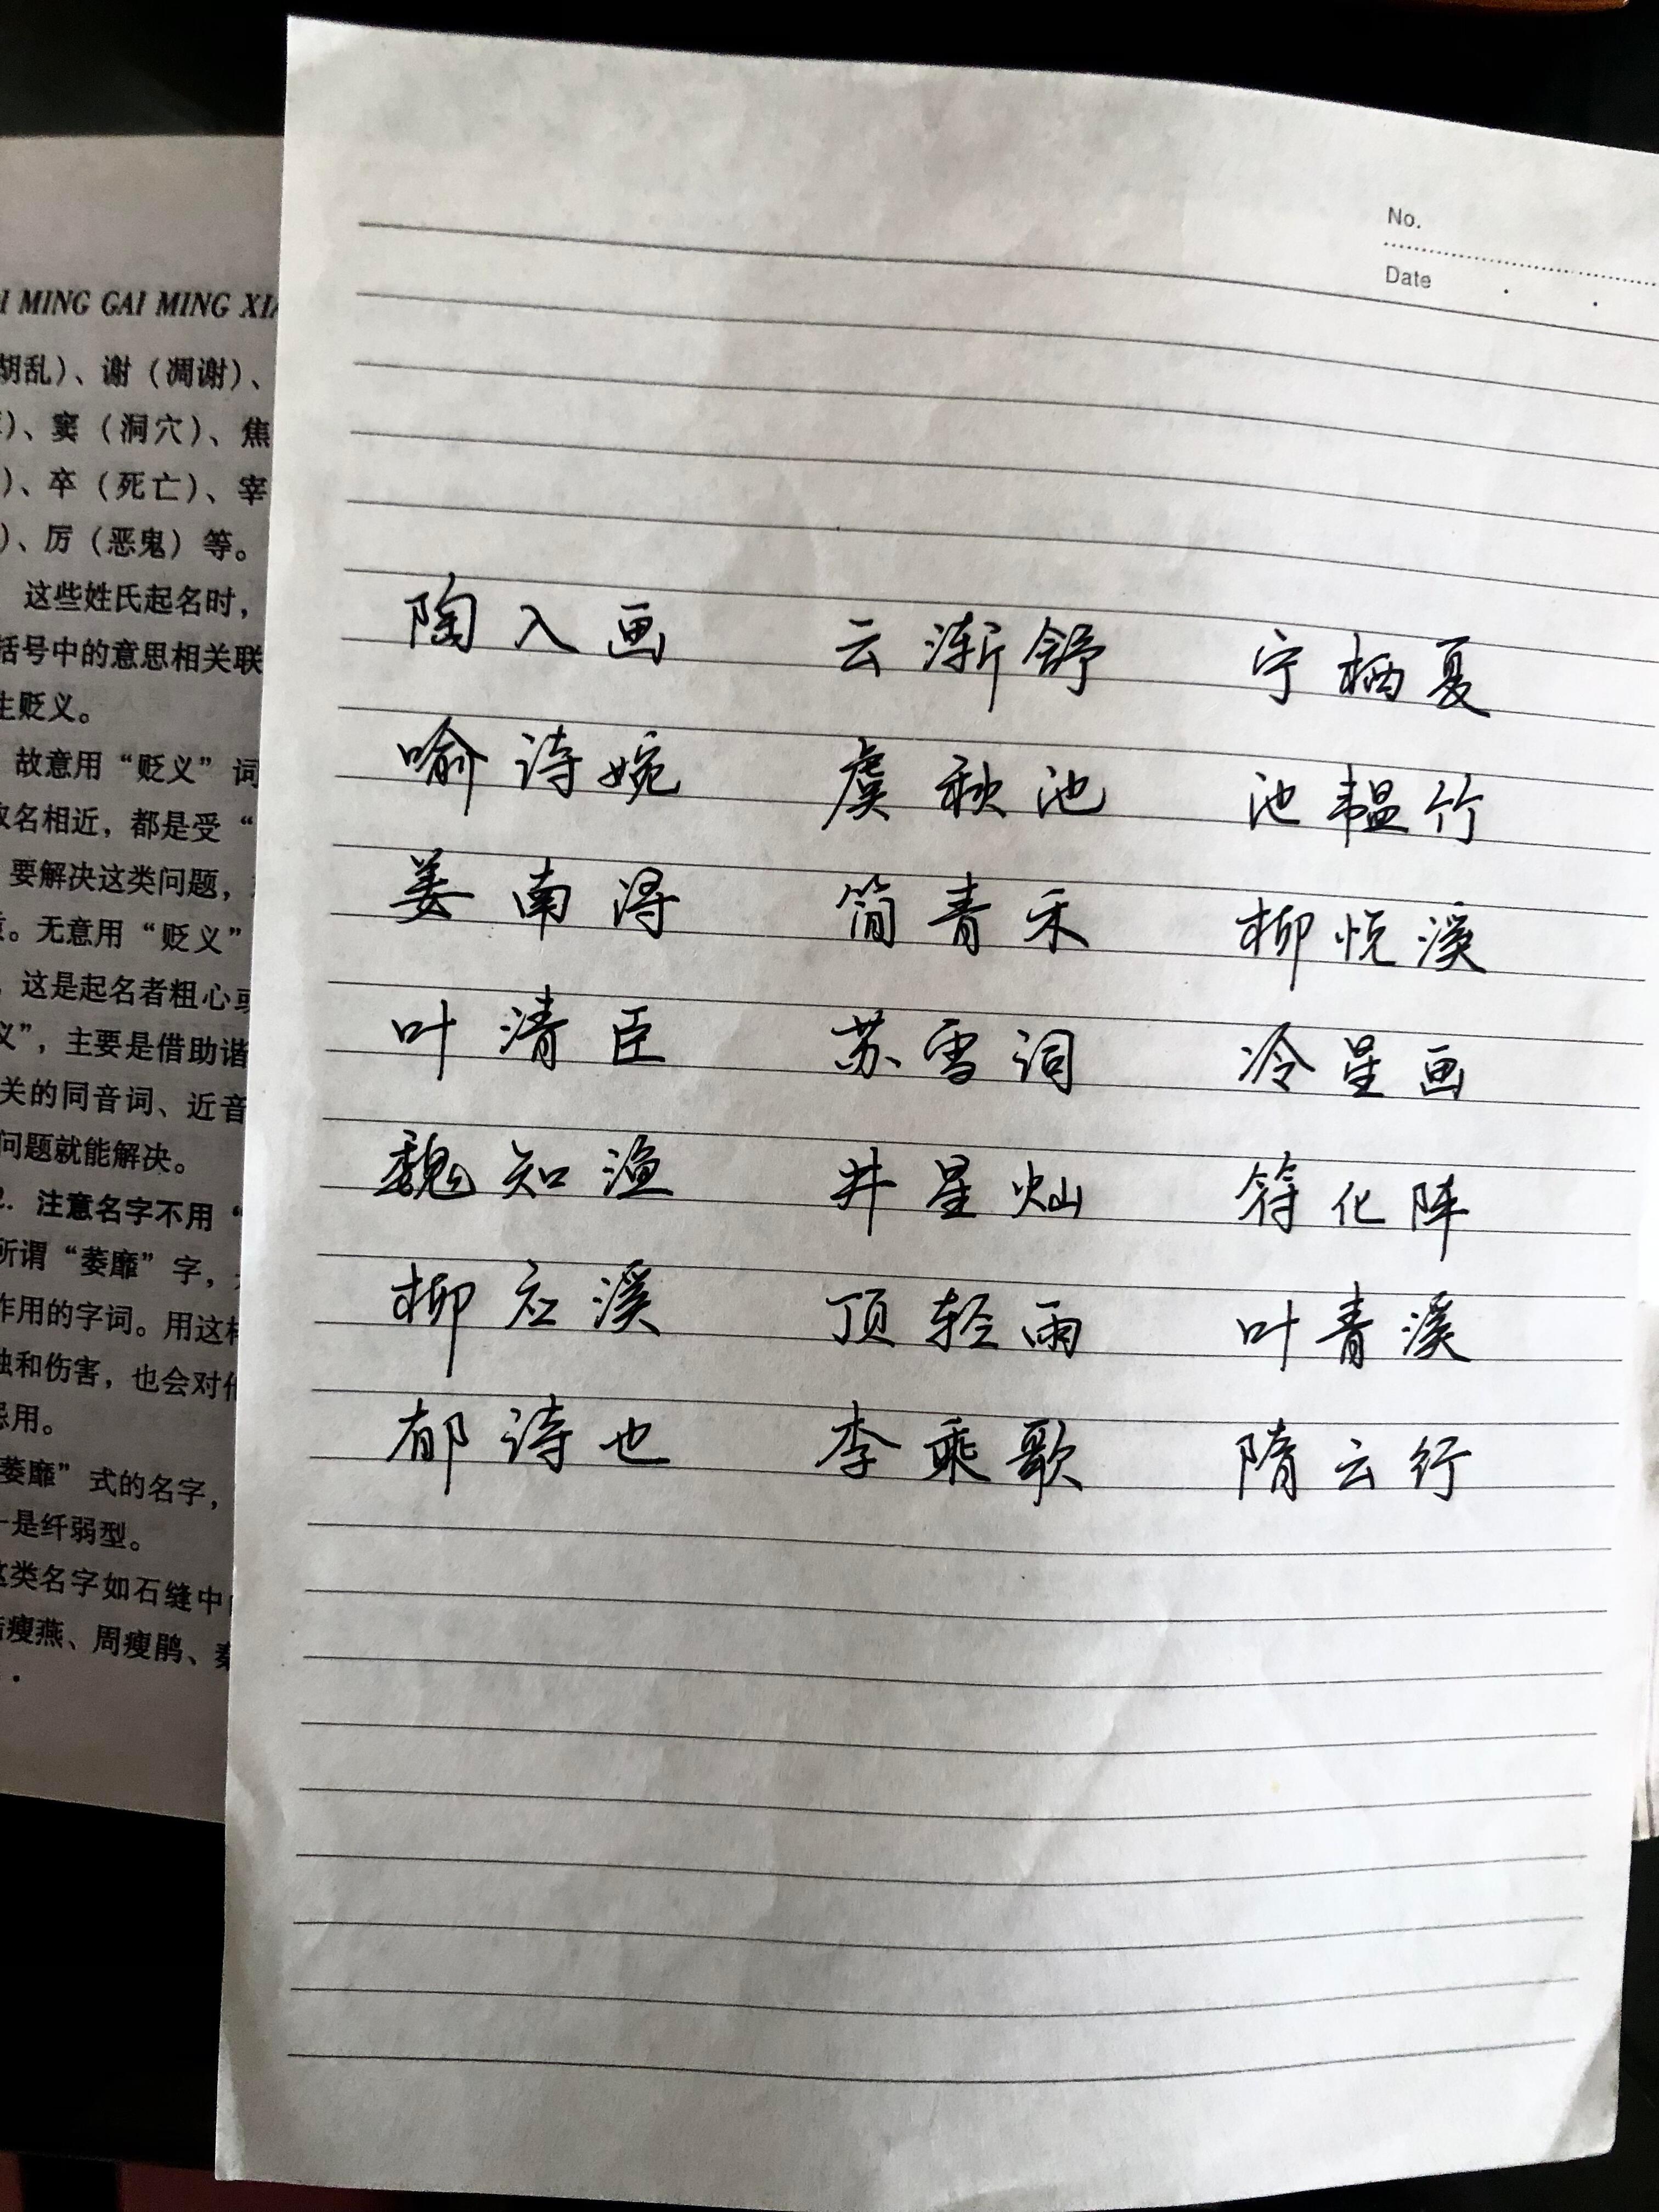 No.
Date
I MING GAI MING XI
胡乱）、谢（凋谢）、
）、窦（洞穴）、焦
）、卒（死亡）、宰
）、厉（恶鬼）等。
这些姓氏起名时，
括号中的意思相关联
生贬义。
故意用“贬义”词
取名相近，都是受“
要解决这类问题，
。无意用“贬义”
，这是起名者粗心或
义”，主要是借助谐
关的同音词、近音
问题就能解决。
2. 注意名字不用“
所谓“萎靡”字，
作用的字词。用这样
蚀和伤害，也会对他
忌用。
萎靡”式的名字，
一是纤弱型。
这类名字如石缝中
瘦燕、周瘦鹃、秦
陶入画 云渐舒 宁栖夏
喻诗婉 虞秋池 池韫竹
姜南浔 简青禾 柳悦溪
叶清臣 苏雪词 冷星画
魏知渔 井星灿 符化阵
柳应溪 顶轻雨 叶青溪
郁诗也 李乘歌 隋云行